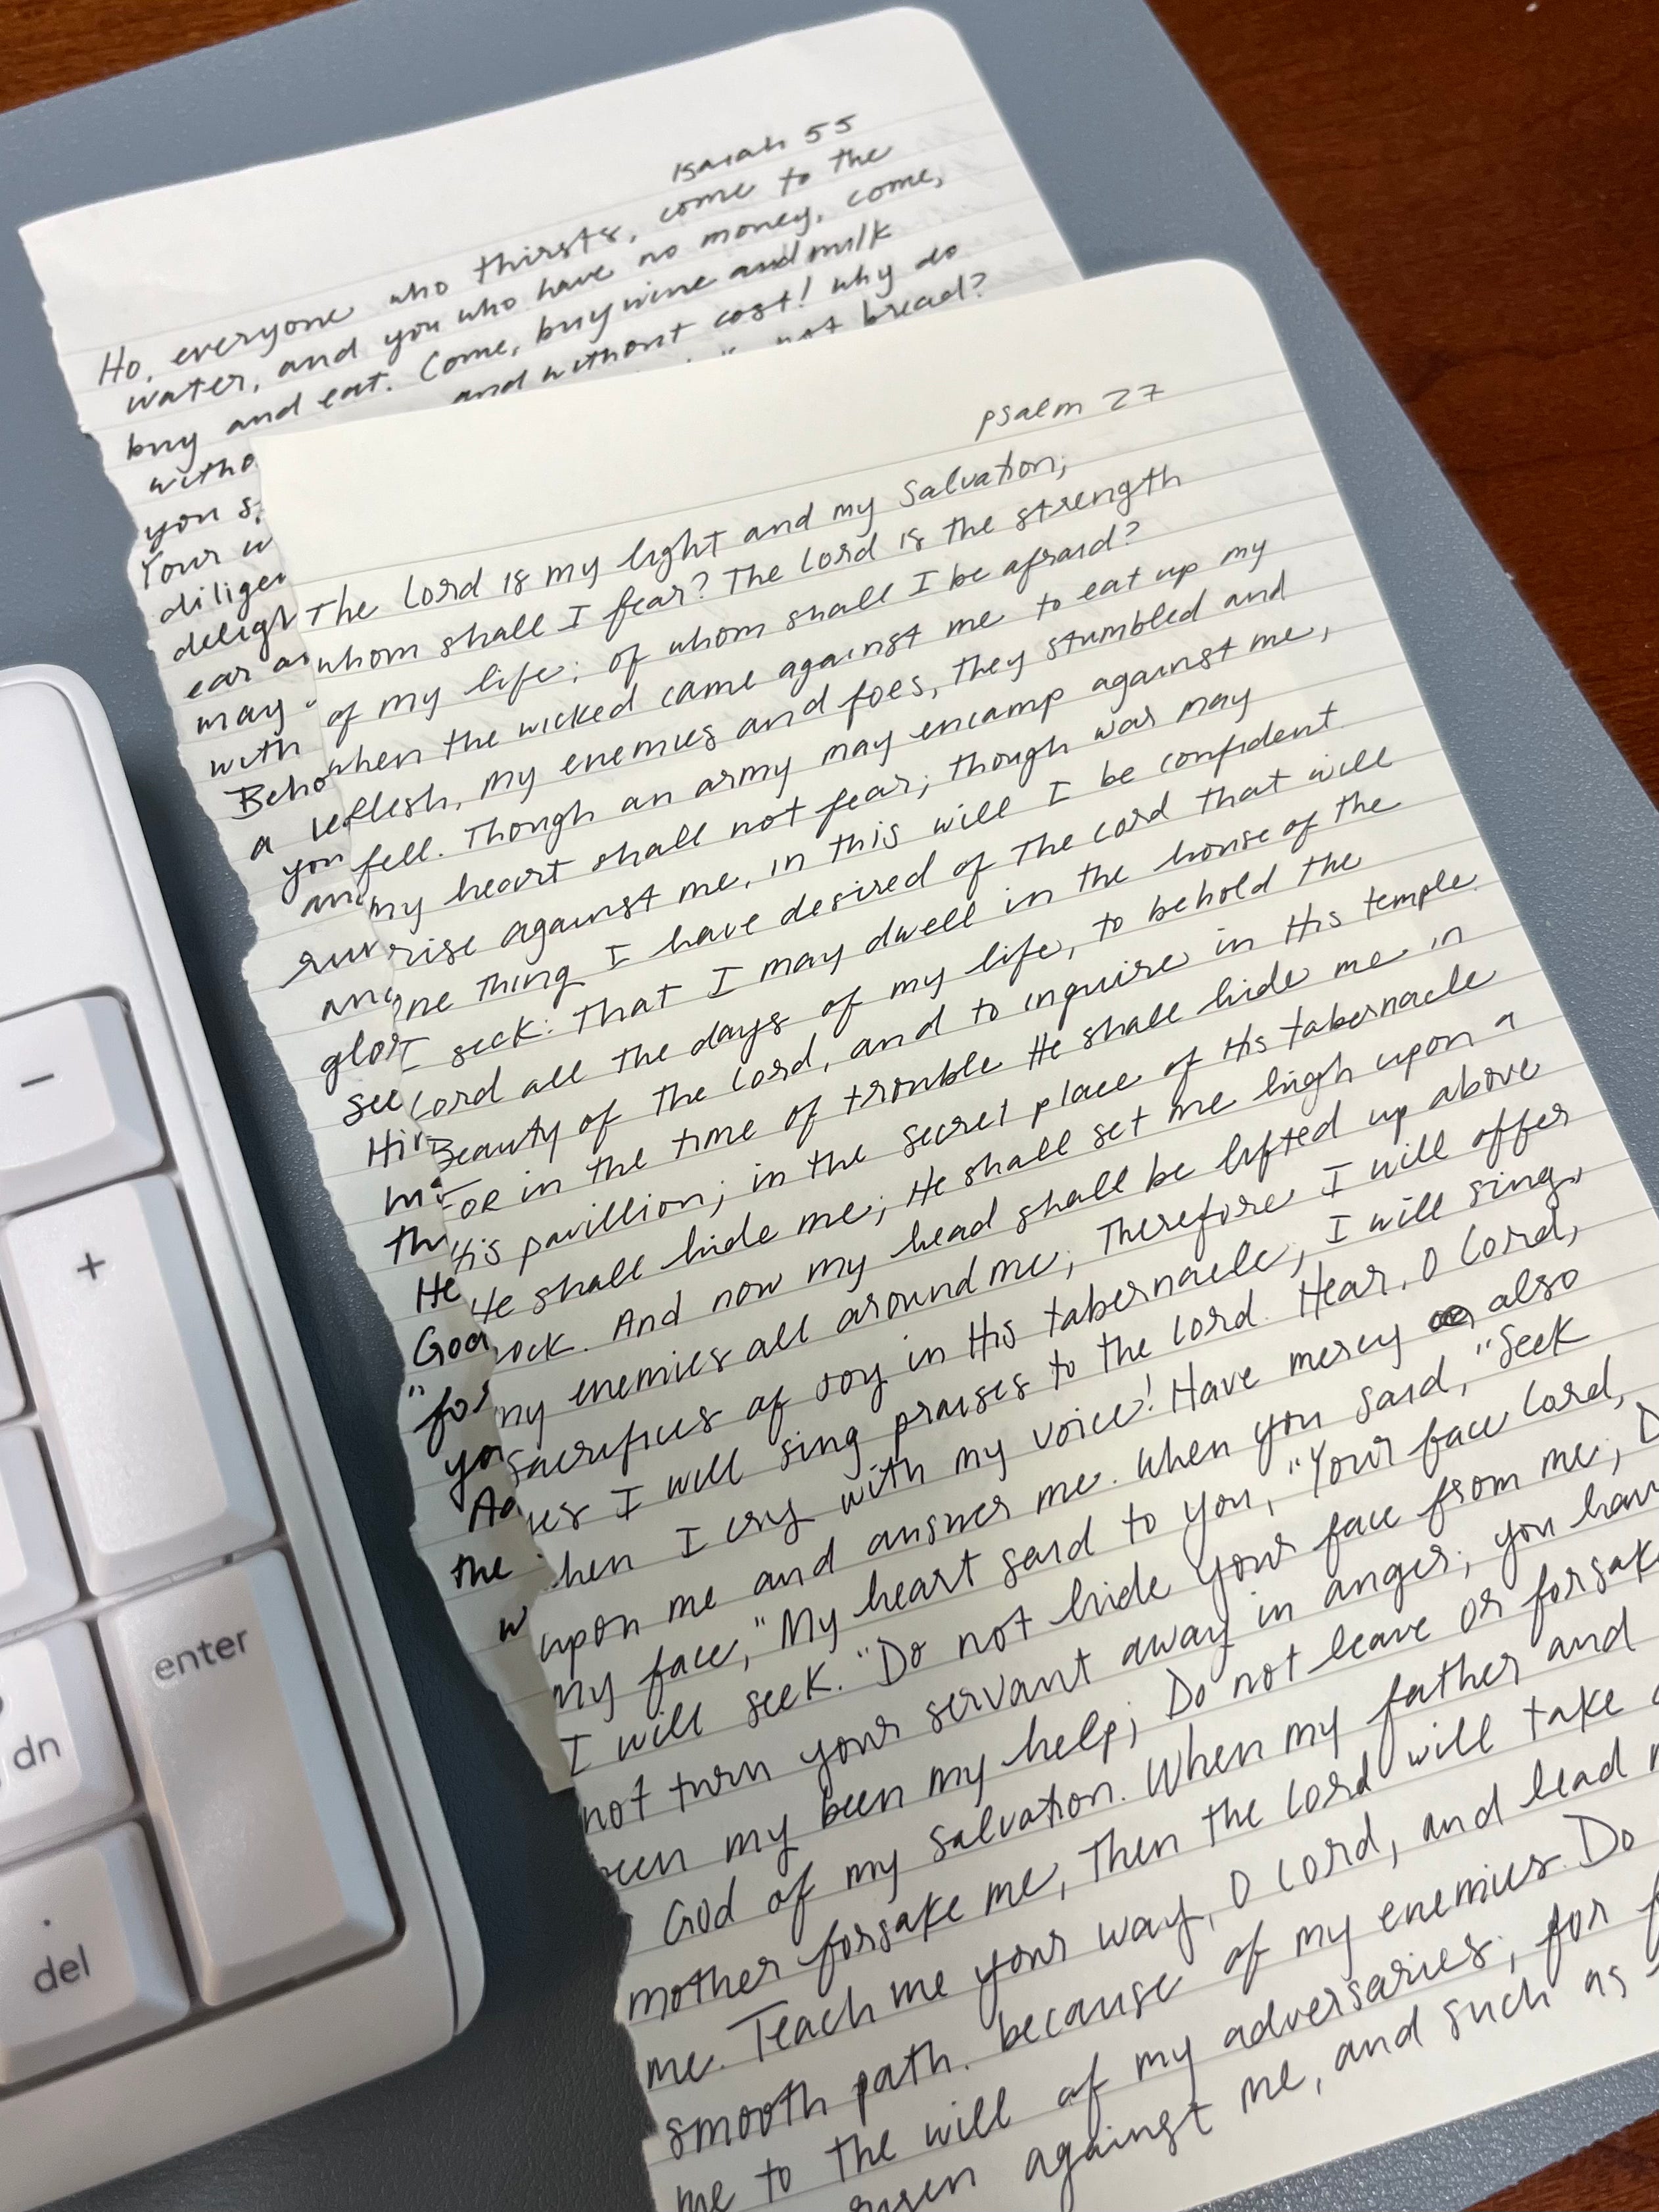 Isaiah 55
Ho, everyone who thirsts, come to the
water, and you who have no money, come,
buy and eat. Come, buy wine and milk
witho and without cost! Why do
you s not bread?
Your w
diliger
deligh
ear
may
with
Beho
a
you
and
sur
and
glor
see
Him
th
He
God
"for
you
the
w
psalm 27
The Lord is my light and my Salvation;
whom shall I fear? The Lord is the strength
of my life; of whom shall I be afraid?
when the wicked came against me to eat up my
flesh, my enemies and foes, they stumbled and
fell. Though an army may encamp against me,
my heart shall not fear; though war may
rise against me, in this will I be confident.
One thing I have desired of The Lord that will
I seek: that I may dwell in the house of the
Lord all the days of my life, to behold the
Beauty of the Lord, and to inquire in His temple.
For in the time of trouble He shall hide me in
His pavillion; in the secret place of His tabernacle
He shall hide me; He shall set me high upon a
rock. And now my head shall be lifted up above
my enemies all around me; Therefore I will offer
sacrifices of joy in His tabernacle; I will sing,
yes I will sing praises to the Lord. Hear, O Lord,
when I cry with my voice! Have mercy also
upon me and answer me. When you said, "Seek
My face," My heart said to You, "Your face Lord,
I will seek." Do not hide Your face from me; D
not turn your servant away in anger; you have
been my been my help; Do not leave or forsake
God of my salvation. When my father and
mother forsake me, Then the Lord will take
me. Teach me your way, O Lord, and lead
smooth path. because of my enemies. Do
me to the will of my adversaries; for f
risen against me, and such as
-
+
enter
dn
.
del